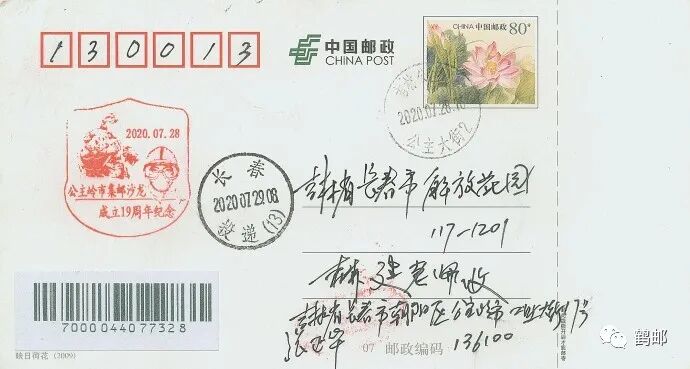 130013
中国邮政
CHINA POST
CHINA 中国邮政 80分
2020.07.28
公主岭市集邮沙龙
成立19周年纪念
2020.07.28
公主大街2
长春
2020 07 29 08
投递(13)
吉林省长春市解放花园
117-1201
林建老师收
吉林省长春市朝阳区公主岭市
7000044077328
映日荷花 (2009)
07 邮政编码 136100
鹤邮